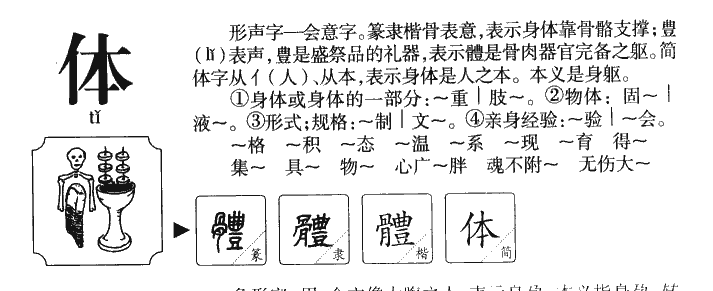 体
tǐ
形声字—会意字。篆隶楷骨表意,表示身体靠骨骼支撑;豊
(lǐ)表声,豊是盛祭品的礼器,表示體是骨肉器官完备之躯。简
体字从亻(人)、从本,表示身体是人之本。本义是身躯。
①身体或身体的一部分:~重|肢~。②物体: 固~|
液~。③形式;规格:~制|文~。④亲身经验:~验|~会。
~格 ~积 ~态 ~温 ~系 ~现 ~育 得~
集~ 具~ 物~ 心广~胖 魂不附~ 无伤大~
體 篆
體 隶
體 楷
体 简